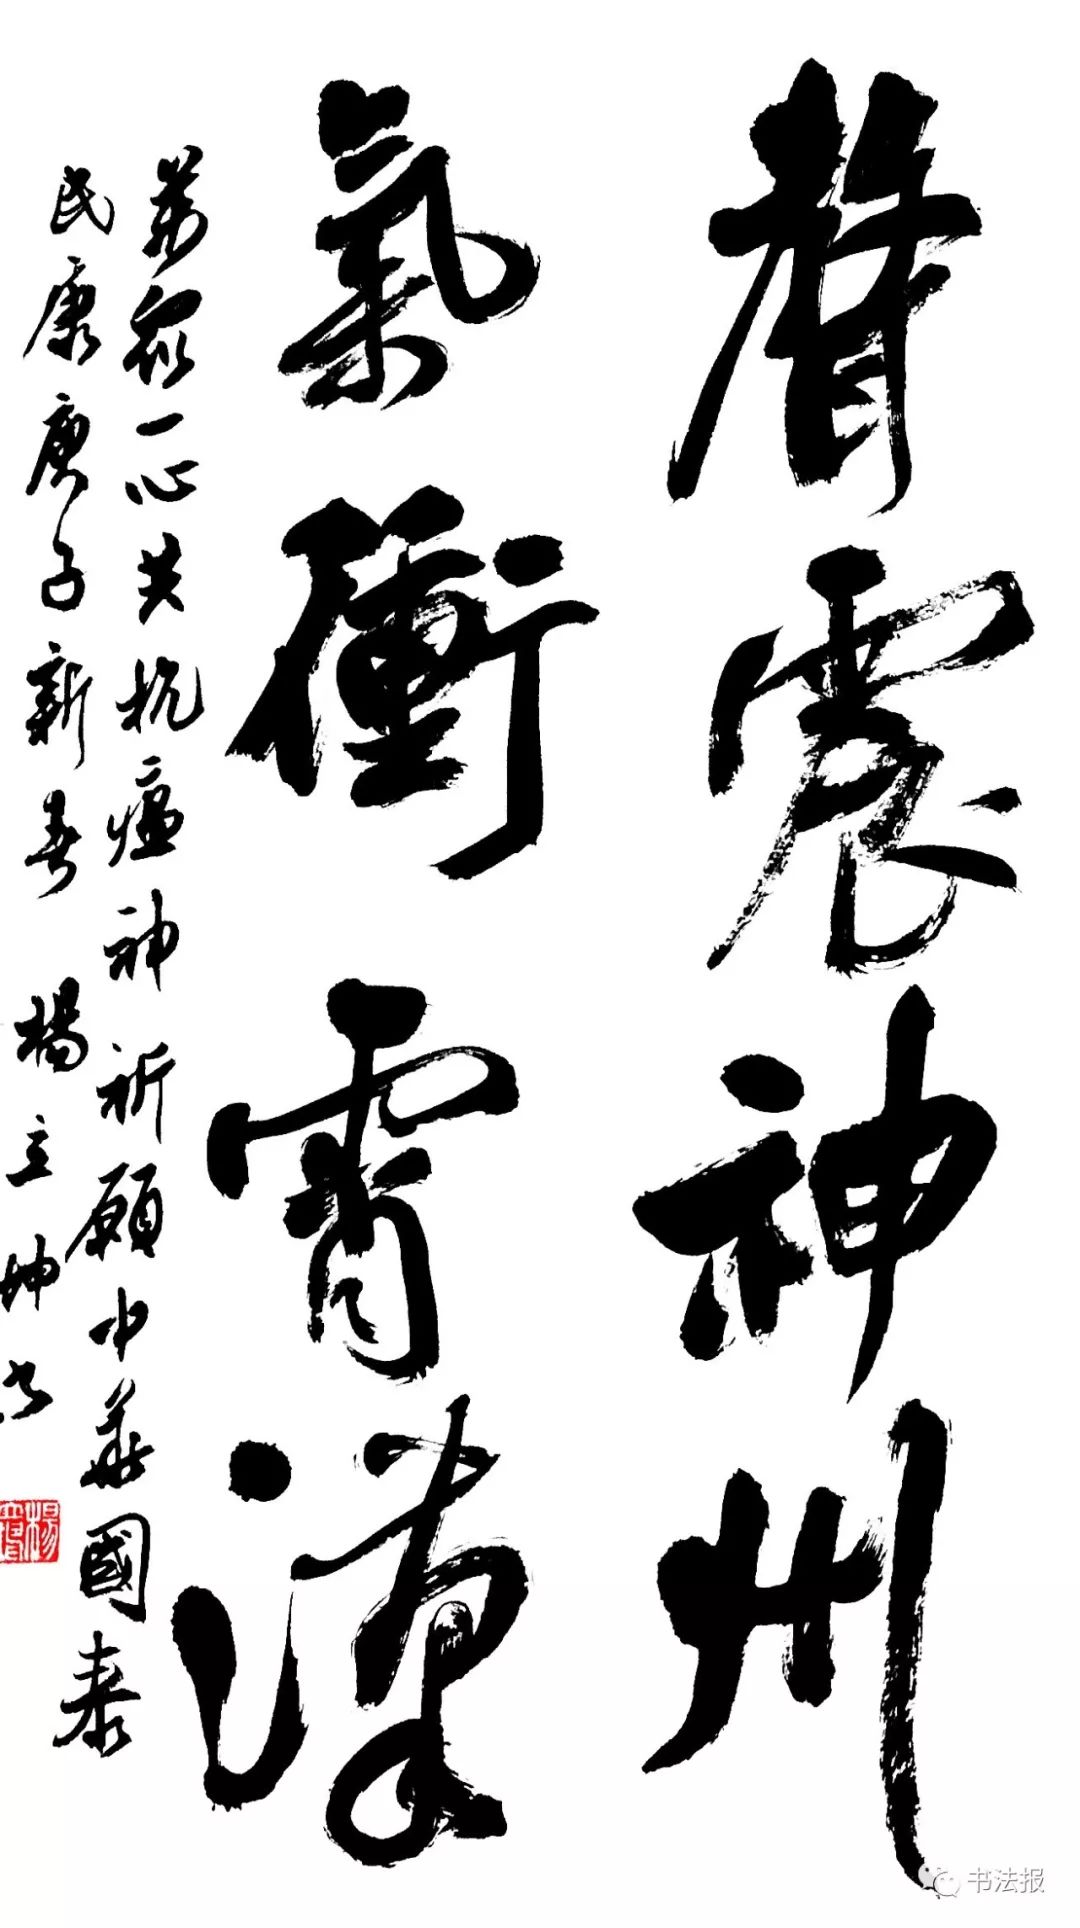 聲震神州
氣衝霄漢
萬衆一心共抗瘟神祈願中華國泰
民康庚子新春楊立坤书
书法报